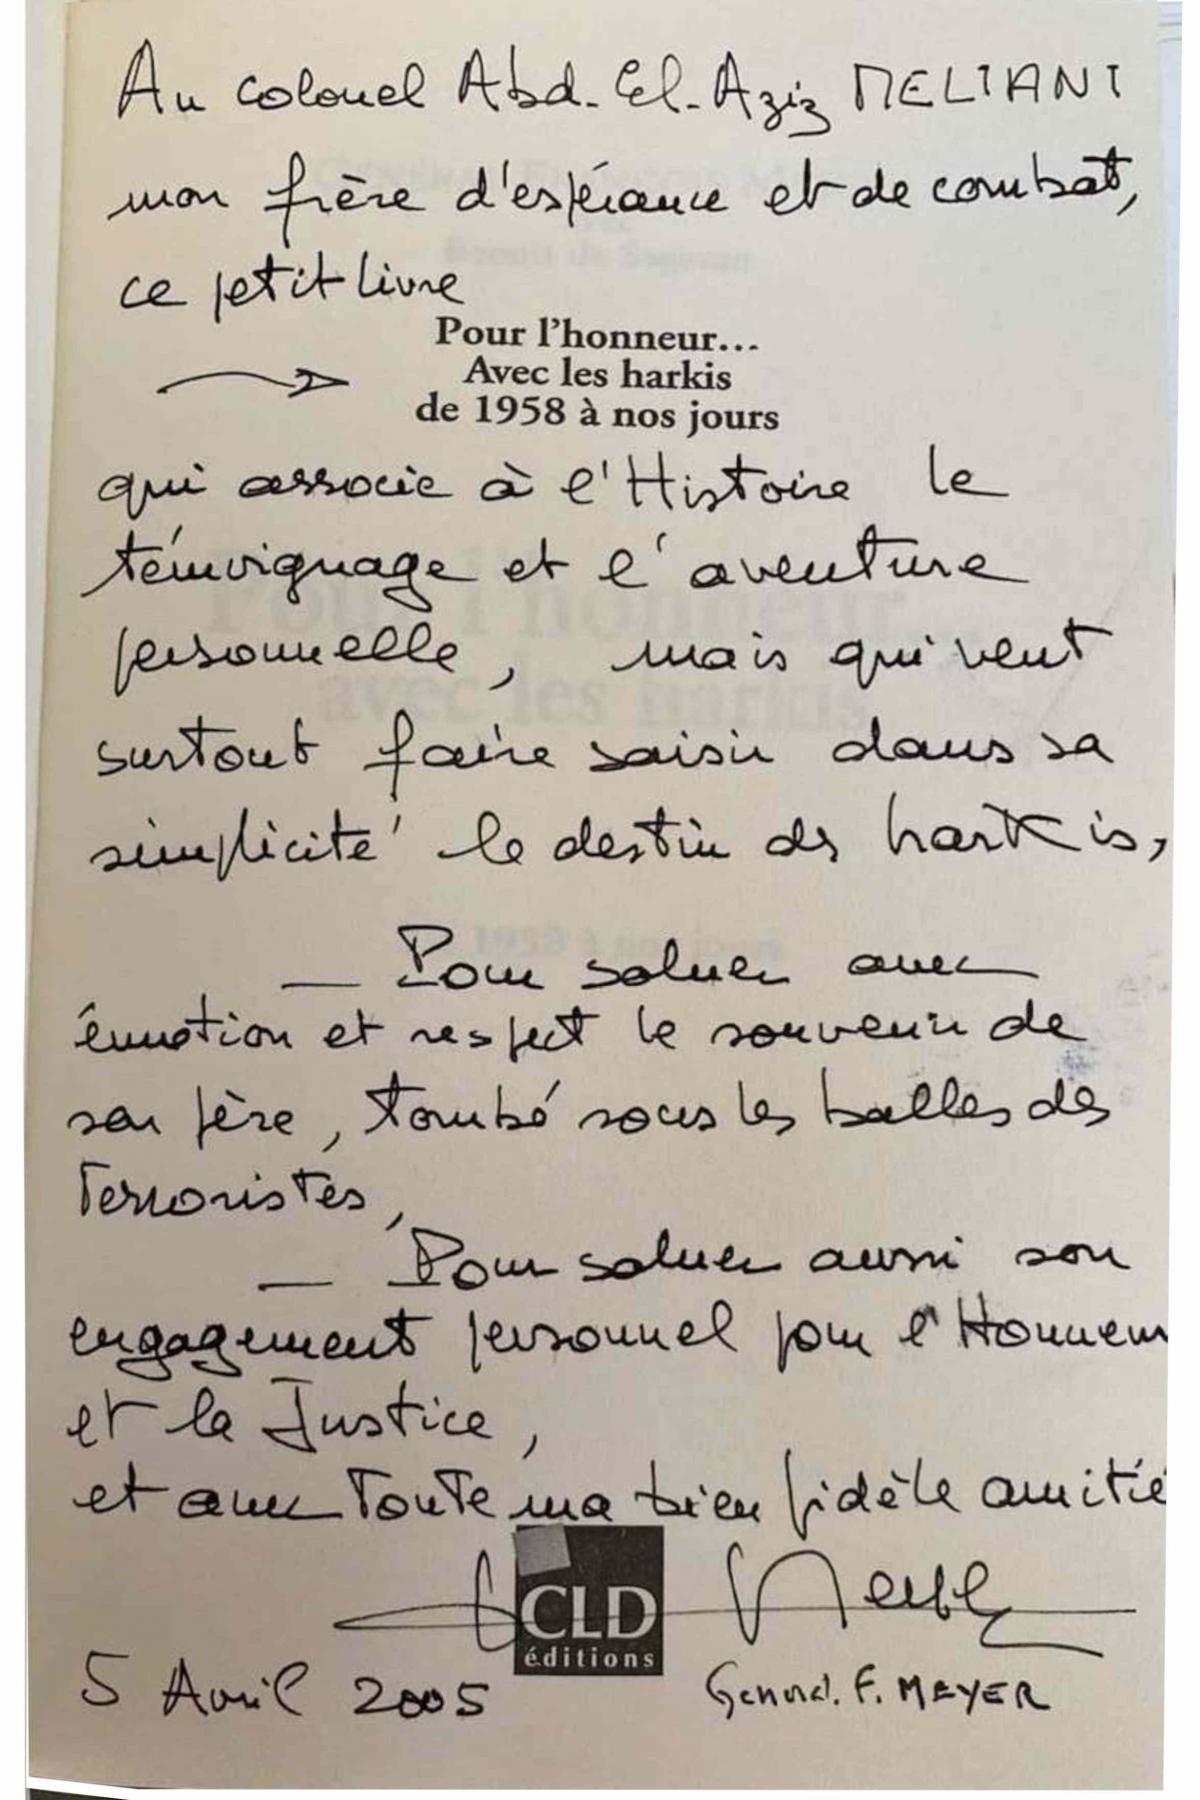 Au colonel Abd-El-Aziz MELIANI
mon frère d'espérance et de combat,
ce petit livre
Pour l'honneur...
Avec les harkis
de 1958 à nos jours
qui associe à l'Histoire le
témoignage et l'aventure
personnelle, mais qui veut
surtout faire saisir dans sa
simplicité le destin des harkis,
— Pour saluer avec
émotion et respect le souvenir de
son père, tombé sous les balles des
Terroristes,
— Pour saluer aussi son
engagement personnel pour l'Honneur
et la Justice,
et avec Toute ma bien fidèle amitié
CLD
éditions
5 Avril 2005
Général. F. MEYER